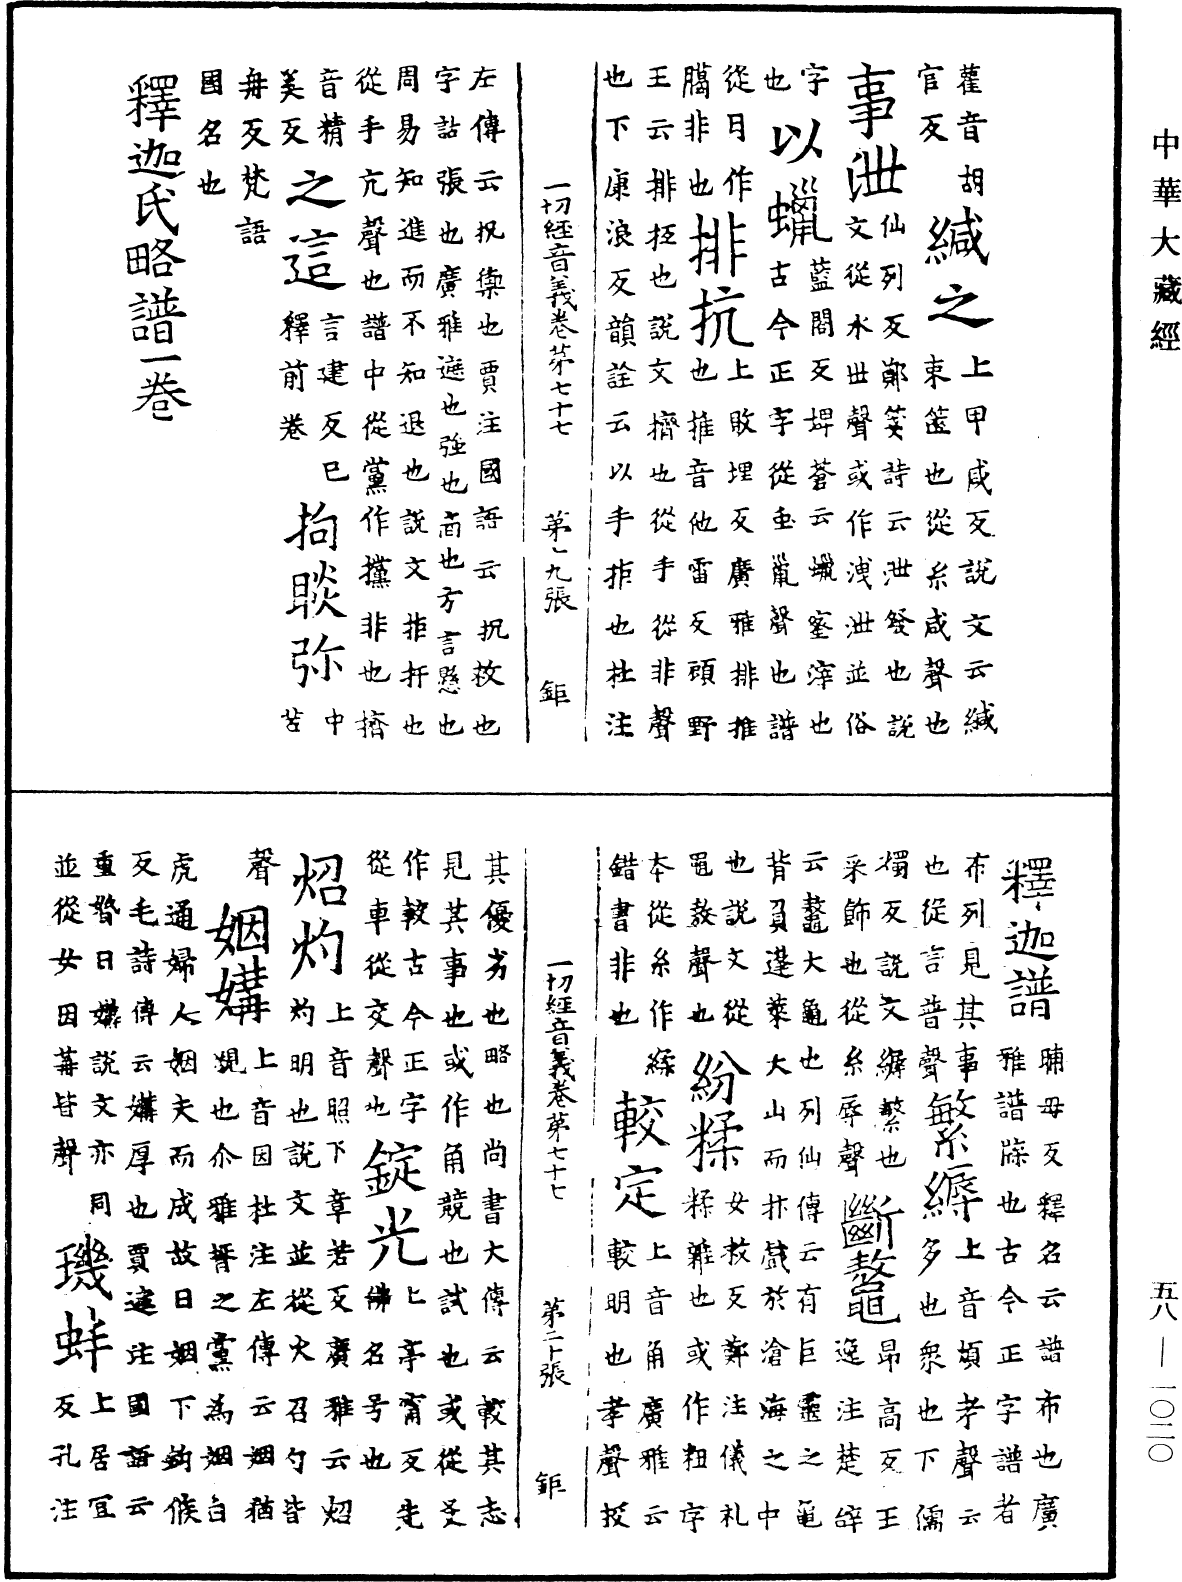 中華大藏經
雚音胡
官反
緘之
上甲咸反説文云緘
束篋也從糸咸聲也
事泄
仙列反鄭箋詩云泄發也説
文從水世聲或作洩泄並俗
字
藍闔反埤蒼云蠟蜜滓也
也
以蠟
古今正字從虫巤聲也譜
從月作
臈非也
排抗
上敗埋反廣雅排推
也推音他雷反頋野
王云排抂也説文擠也從手從非聲
也下康浪反韻詮云以手拒也杜注
一切經音義卷苐七十七
第十九張
鉅
左傳云抗禦也賈注國語云抗救也
字詁張也廣雅遮也強也啇也方言懸也
周易知進而不知退也説文拒扞也
從手亢聲也譜中從黨作攩非也擠
音精
美反
之這
言建反巳
釋前卷
拘睒弥
中
苦
毋反梵語
國名也
釋迦氏略譜一卷
釋迦譜
晡毋反釋名云譜布也廣
雅譜牒也古今正字譜者
布列見其事
也從言普聲
繁縟
上音煩考聲云
多也衆也下儒
燭反説文縟繁也
采飾也從糸辱聲
斷鼇
昂高反王
逸注楚辞
云鼇大龜也列仙傳云有巨靈之龜
背負蓬萊大山而抃戲於滄海之中
也説文從
黽敖聲也
紛糅
女救反鄭注儀礼
糅雜也或作粈字
本從糸作𦂌
錯書非也
較定
上音角廣雅云
較明也孝聲挍
一切經音義卷第七十七
第二十張
鉅
其優劣也略也尚書大傳云較其志
見其事也或作角競也試也或從爻
作較古今正字
從車從交聲也
錠光
上亭甯反先
佛名号也
炤灼
上音照下章若反廣雅云炤
灼明也説文並從火召勺皆
聲
姻媾
上音因杜注左傳云姻猶
覞也尒雅壻之黨為姻白
虎通婦人姻夫而成故曰姻下鉤候
反毛詩傳云媾厚也賈逵注國語云
重婚曰媾説文亦同
並從女因冓皆聲
璣蚌
上居冝
反孔注
五八—一〇二〇